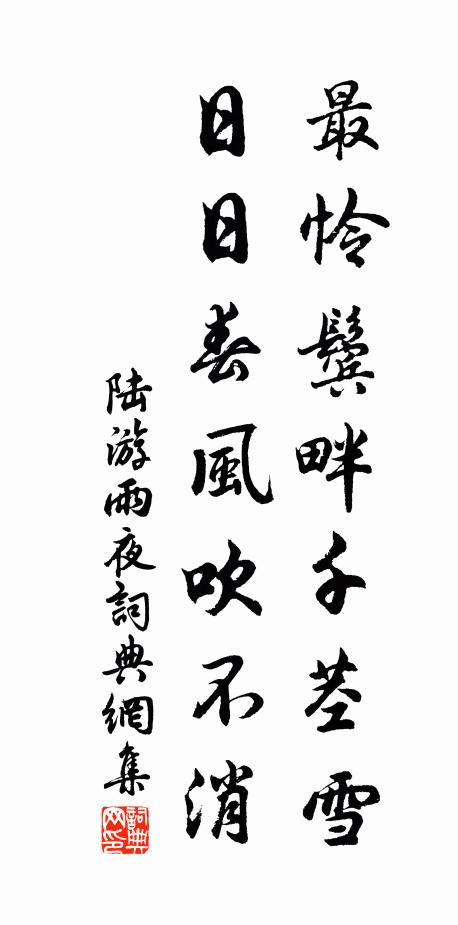 最怜鬓畔千茎雪
日日春風吹不消
陆游雨夜詞典網集
詞典
网印